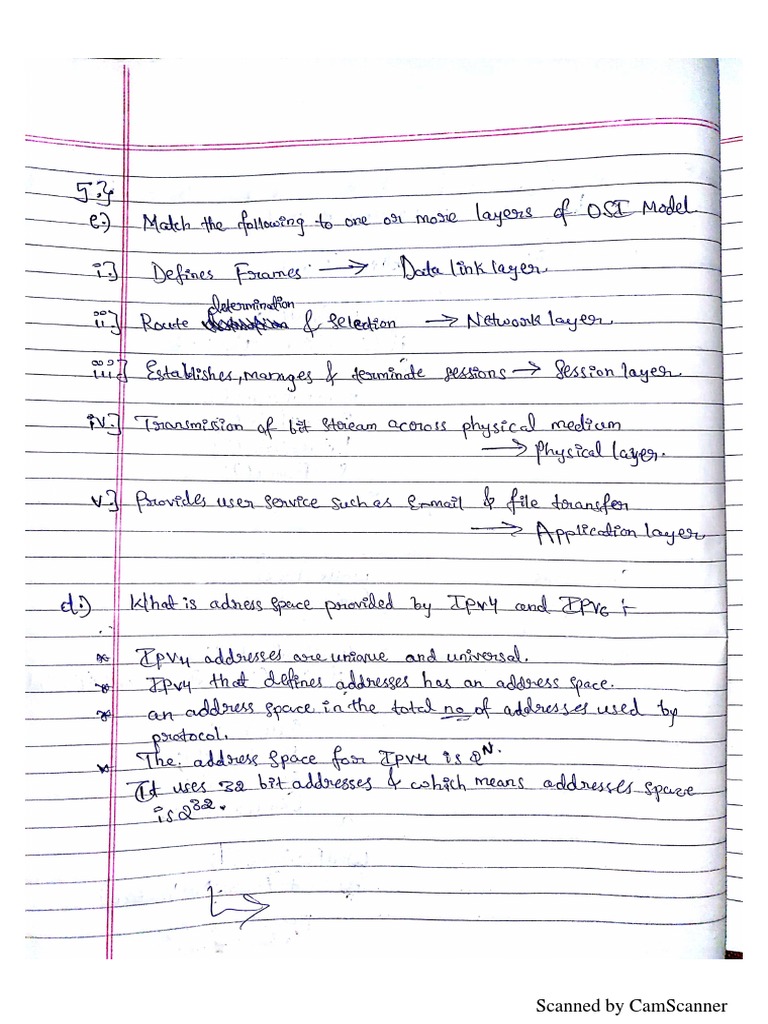 5.}
e.) Match the following to one or more layers of OSI Model
i.] Defines Frames → Data link layer.
determination
ii] Route & selection → Network layer.
iii] Establishes, manages & terminate sessions → Session layer.
iv.] Transmission of bit stream across physical medium
→ Physical layer.
v.] Provides user service such as E-mail & file transfer
→ Application layer
d.) What is adress space provided by IPv4 and IPV6 :-
* IPv4 addresses are unique and universal.
* IPv4 that defines addresses has an address space.
* an address space in the total no of addresses used by
protocol.
* The address space for IPv4 is 2^N.
It uses 32 bit addresses & which means addresses space
is 2^32.
Scanned by CamScanner